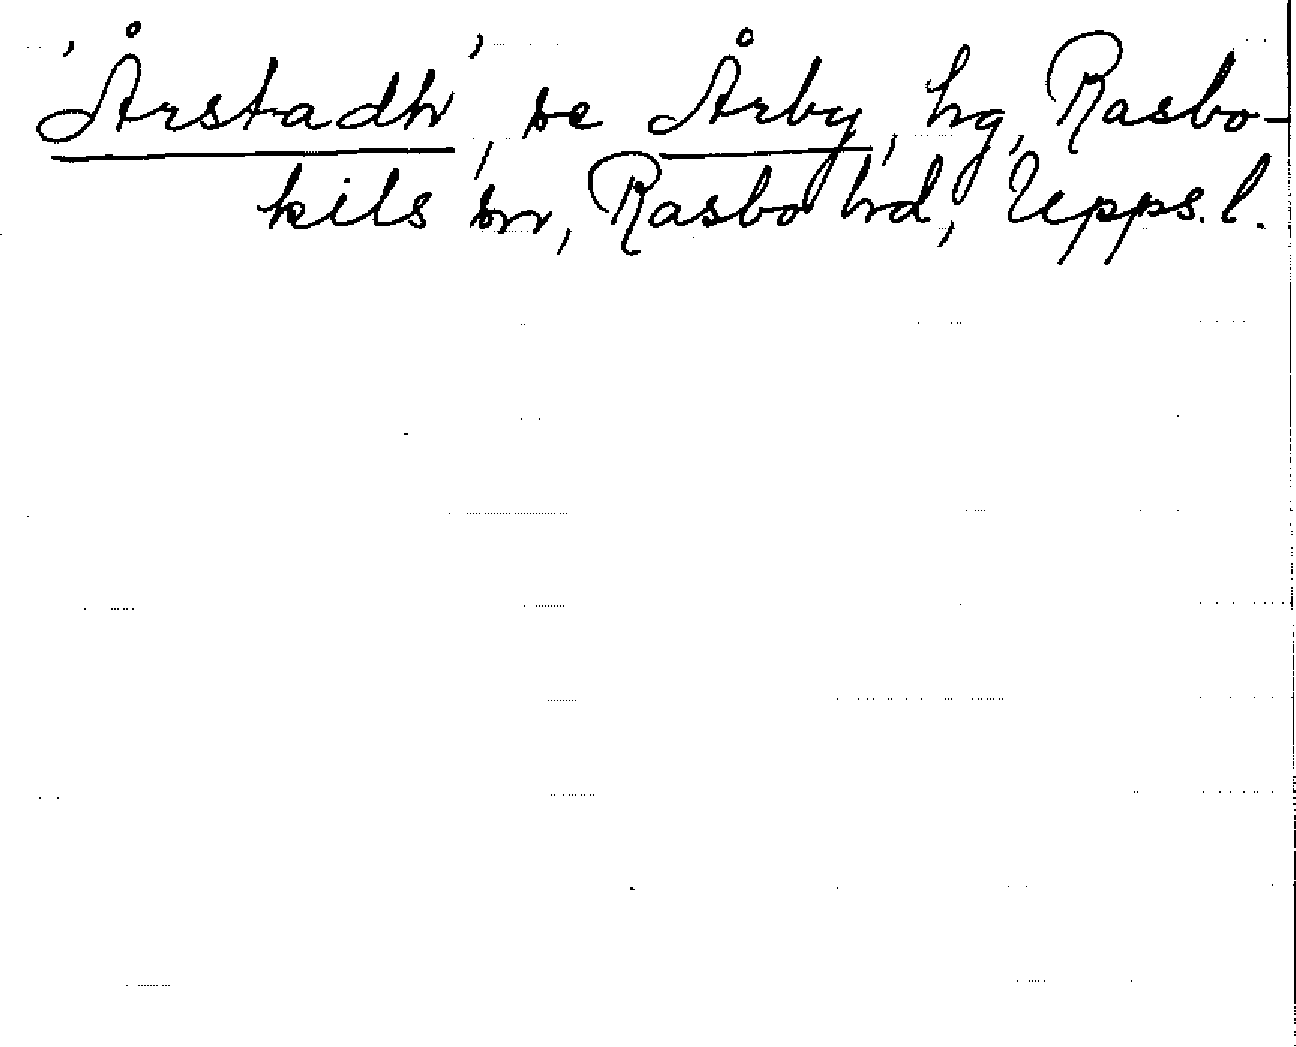 'Årstadh', se Årby, hg, Rasbo-
kils sn, Rasbo hd, Upps. l.